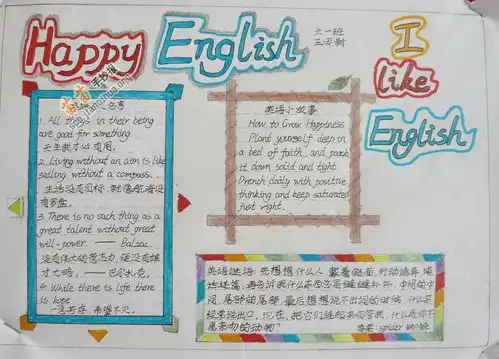 Happy English
六一班
I
like
English
名言
1. All things in their being
are good for something.
天生我才必有用.
2. Living without an aim is like
sailing without a compass.
生活没有目标,就像航海没
有罗盘.
3. There is no such thing as a
great talent without great
will-power. —— Balzac.
没有伟大的意志力,便没有雄
才大略. —— 巴尔扎克.
4. While there is life there
is hope
一息若存,希望不灭.
英语小故事
How to Grow Happiness
Plant yourself deep in
a bed of faith, and pack
it down solid and tight.
Drench daily with positive
thinking and keep saturated
just right.
英语谜语: 先想想什么人 戴着假面,行动诡异 难
达迷离,再告诉我什么东西总是缝缝补补,中间的中
间,尾部的尾部,最后想想说不出词的时候,什么
经常说出口,现在,把它们连起来回答我,什么是你不
愿亲吻的动物?
答案: spider 蜘蛛